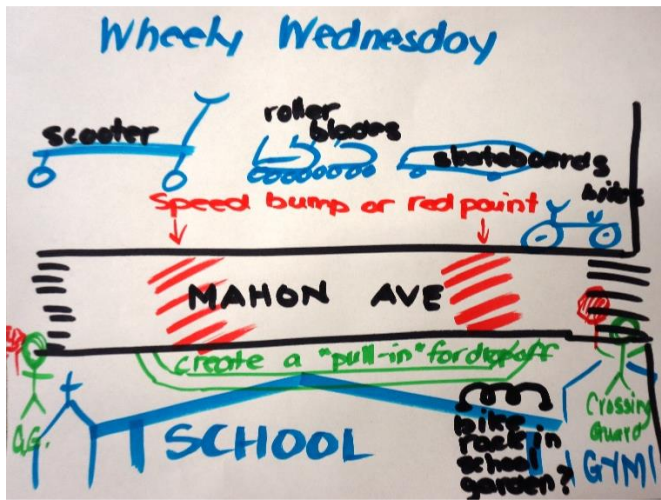 Wheely Wednesday
scooter
roller
blades
skateboards
bikes
Speed bump or red paint
MAHON AVE
create a "pull-in" for dropoff
C.G.
SCHOOL
bike
rack in
school
garden?
Crossing
Guard
GYM